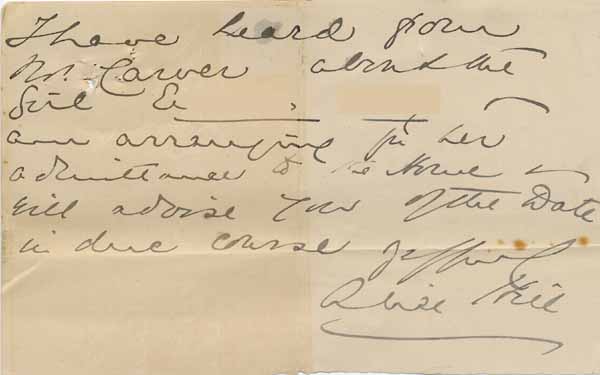 I have heard from
Mr. Carver about the
girl E
am arranging for her
admittance to the Home &
will advise you of the Date
in due course
Hill